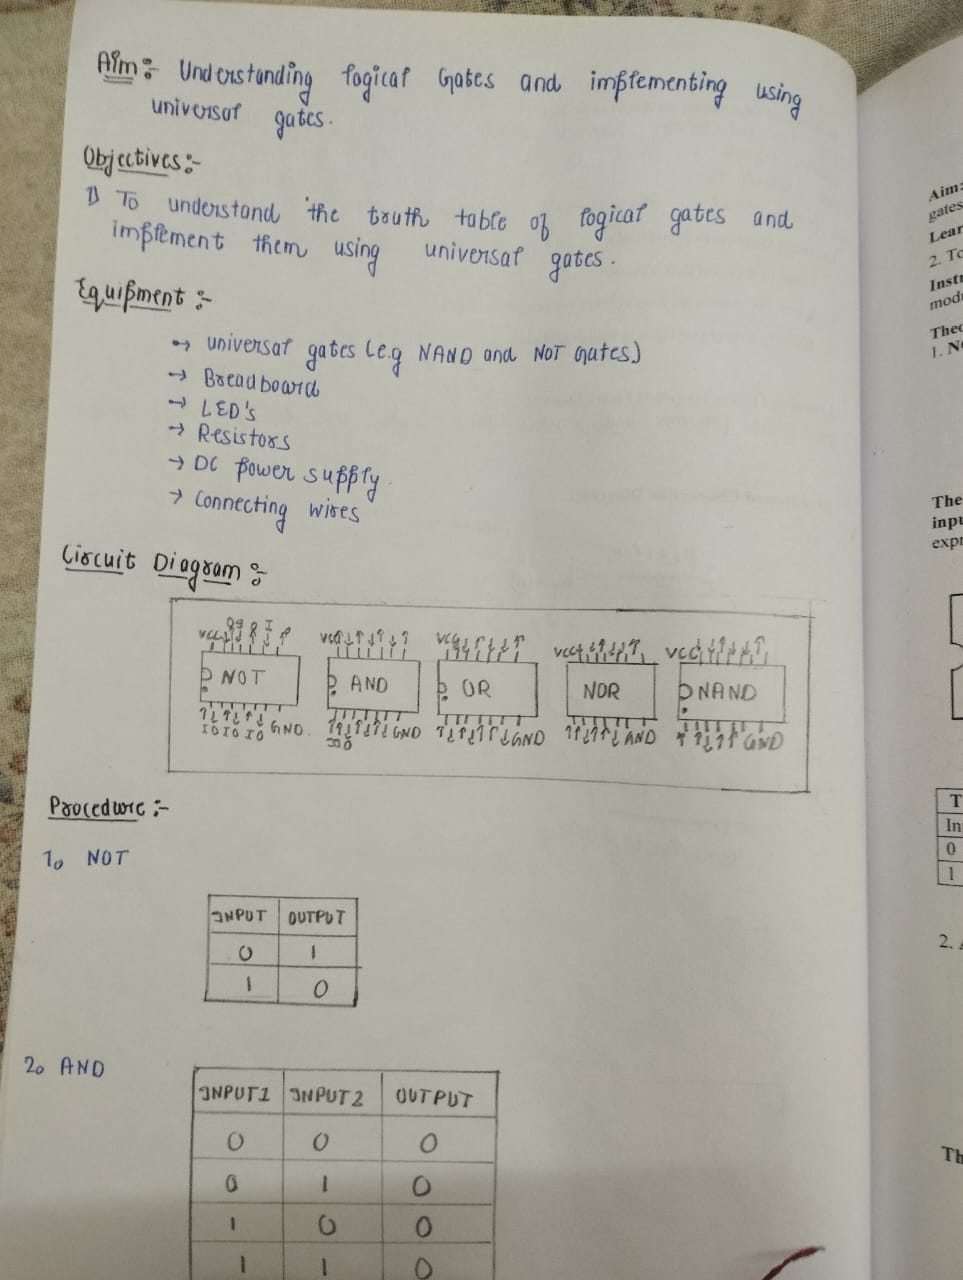 Aim:- Understanding logical Gates and implementing using
universal gates.
Objectives:-
1) To understand the truth table of logical gates and
implement them using universal gates.
Equipment:-
→ universal gates (e.g NAND and NOT Gates)
→ Breadboard
→ LED's
→ Resistors
→ DC power supply.
→ Connecting wires
Circuit Diagram:-
VCC VCC VCC VCC VCC
NOT AND OR NOR NAND
IO IO IO GND. GND GND GND
Procedure:-
1. NOT
INPUT OUTPUT
0 1
1 0
2. AND
INPUT1 INPUT2 OUTPUT
0 0 0
0 1 0
1 0 0
1 1 0
Aim:
gates
Lear
2. To
Instr
mod
Theo
1. N
The
inpu
expr
T
In
0
1
2.
Th